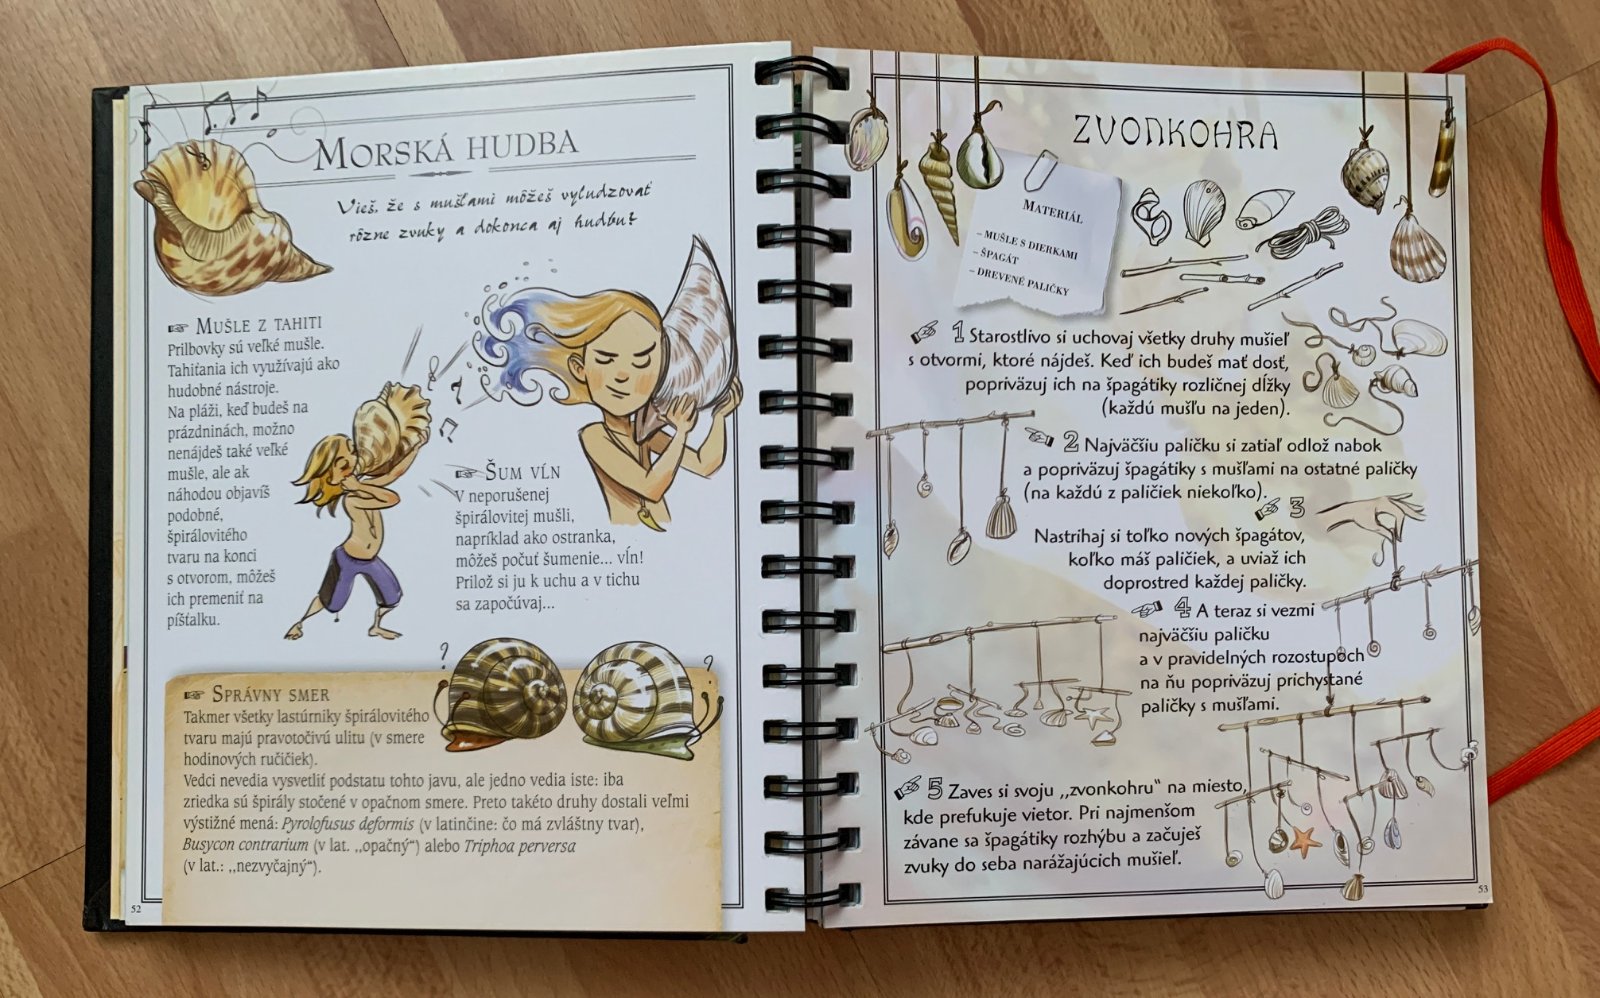 MORSKÁ HUDBA
Vieš, že s mušľami môžeš vyludzovať
rôzne zvuky a dokonca aj hudbu?
☞ MUŠLE Z TAHITI
Prilbovky sú veľké mušle.
Tahiťania ich využívajú ako
hudobné nástroje.
Na pláži, keď budeš na
prázdninách, možno
nenájdeš také veľké
mušle, ale ak
náhodou objavíš
podobné,
špirálovitého
tvaru na konci
s otvorom, môžeš
ich premeniť na
píšťalku.
☞ ŠUM VĹN
V neporušenej
špirálovitej mušli,
napríklad ako ostranka,
môžeš počuť šumenie... vĺn!
Prilož si ju k uchu a v tichu
sa započúvaj...
? ?
☞ SPRÁVNY SMER
Takmer všetky lastúrniky špirálovitého
tvaru majú pravotočivú ulitu (v smere
hodinových ručičiek).
Vedci nevedia vysvetliť podstatu tohto javu, ale jedno vedia iste: iba
zriedka sú špirály stočené v opačnom smere. Preto takéto druhy dostali veľmi
výstižné mená: Pyrolofusus deformis (v latinčine: čo má zvláštny tvar),
Busycon contrarium (v lat. ,,opačný“) alebo Triphoa perversa
(v lat.: ,,nezvyčajný“).
52
ZVONKOHRA
MATERIÁL
– MUŠLE S DIERKAMI
– ŠPAGÁT
– DREVENÉ PALIČKY
☞ 1 Starostlivo si uchovaj všetky druhy mušieľ
s otvormi, ktoré nájdeš. Keď ich budeš mať dosť,
popriväzuj ich na špagátiky rozličnej dĺžky
(každú mušľu na jeden).
☞ 2 Najväčšiu paličku si zatiaľ odlož nabok
a popriväzuj špagátiky s mušľami na ostatné paličky
(na každú z paličiek niekoľko).
☞ 3
Nastrihaj si toľko nových špagátov,
koľko máš paličiek, a uviaž ich
doprostred každej paličky.
☞ 4 A teraz si vezmi
najväčšiu paličku
a v pravidelných rozostupoch
na ňu popriväzuj prichystané
paličky s mušľami.
☞ 5 Zaves si svoju ,,zvonkohru“ na miesto,
kde prefukuje vietor. Pri najmenšom
závane sa špagátiky rozhýbu a začuješ
zvuky do seba narážajúcich mušieľ.
53